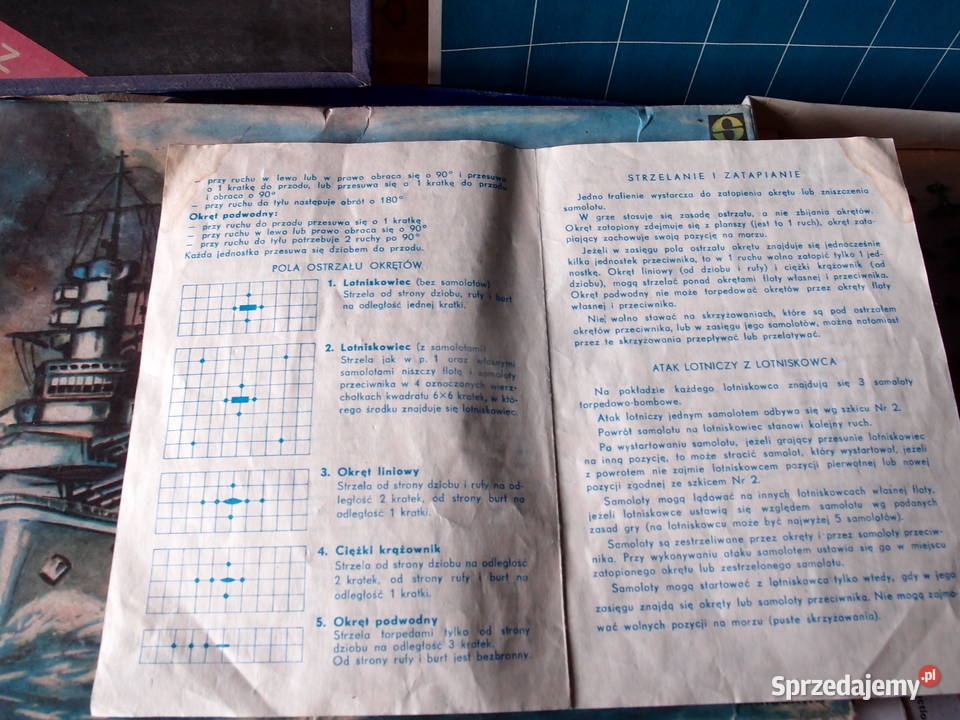 – przy ruchu w lewo lub w prawo obraca się o 90° i przesuwa
o 1 kratkę do przodu, lub przesuwa się o 1 kratkę do przodu
i obraca o 90°
– przy ruchu do tyłu następuje obrót o 180°
Okręt podwodny:
– przy ruchu do przodu przesuwa się o 1 kratkę
– przy ruchu w lewo lub prawo obraca się o 90°
– przy ruchu do tyłu potrzebuje 2 ruchy po 90°
Każda jednostka przesuwa się dziobem do przodu.
POLA OSTRZAŁU OKRĘTÓW
1. Lotniskowiec (bez samolotów)
Strzela od strony dziobu, rufy i burt
na odległość jednej kratki.
2. Lotniskowiec (z samolotami)
Strzela jak w p. 1 oraz własnymi
samolotami niszczy flotę i samoloty
przeciwnika w 4 oznaczonych wierz-
chołkach kwadratu 6×6 kratek, w któ-
rego środku znajduje się lotniskowiec.
3. Okręt liniowy
Strzela od strony dziobu i rufy na od-
ległość 2 kratek, od strony burt na
odległość 1 kratki.
4. Ciężki krążownik
Strzela od strony dziobu na odległość
2 kratek, od strony rufy i burt na
odległość 1 kratki.
5. Okręt podwodny
Strzela torpedami tylko od strony
dziobu na odległość 3 kratek.
Od strony rufy i burt jest bezbronny.
STRZELANIE I ZATAPIANIE
Jedno trafienie wystarcza do zatopienia okrętu lub zniszczenia
samolotu.
W grze stosuje się zasadę ostrzału, a nie zbijania okrętów.
Okręt zatopiony zdejmuje się z planszy (jest to 1 ruch), okręt zata-
piający zachowuje swoją pozycję na morzu.
Jeżeli w zasięgu pola ostrzału okrętu znajduje się jednocześnie
kilka jednostek przeciwnika, to w 1 ruchu wolno zatopić tylko 1 jed-
nostkę. Okręt liniowy (od dziobu i rufy) i ciężki krążownik (od
dziobu), mogą strzelać ponad okrętami floty własnej i przeciwnika.
Okręt podwodny nie może torpedować okrętów przez okręty floty
własnej i przeciwnika.
Nie wolno stawać na skrzyżowaniach, które są pod ostrzałem
okrętów przeciwnika, lub w zasięgu jego samolotów, można natomiast
przez te skrzyżowania przepływać lub przelatywać.
ATAK LOTNICZY Z LOTNISKOWCA
Na pokładzie każdego lotniskowca znajdują się 3 samoloty
torpedowo-bombowe.
Atak lotniczy jednym samolotem odbywa się wg szkicu Nr 2.
Powrót samolotu na lotniskowiec stanowi kolejny ruch.
Po wystartowaniu samolotu, jeżeli grający przesunie lotniskowiec
na inną pozycję, to może stracić samolot, który wystartował, jeżeli
z powrotem nie zajmie lotniskowcem pozycji pierwotnej lub nowej
pozycji zgodnej ze szkicem Nr 2.
Samoloty mogą lądować na innych lotniskowcach własnej floty,
jeżeli lotniskowce ustawią się względem samolotu wg podanych
zasad gry (na lotniskowcu może być najwyżej 5 samolotów).
Samoloty są zestrzeliwane przez okręty i przez samoloty przeciw-
nika. Przy wykonywaniu ataku samolotem ustawia się go w miejscu
zatopionego okrętu lub zestrzelonego samolotu.
Samoloty mogą startować z lotniskowca tylko wtedy, gdy w jego
zasięgu znajdą się okręty lub samoloty przeciwnika. Nie mogą zajmo-
wać wolnych pozycji na morzu (puste skrzyżowania).
Sprzedajemy.pl